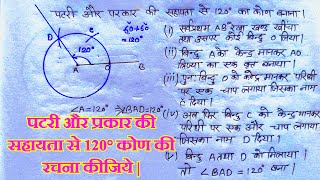 पटरी और परकार की सहायता से 120° का कोण बनाना।
(i) सर्वप्रथम AB रेखा खण्ड खींचा
तथा उसपर कोई बिन्दु O लिया।
(ii) बिन्दु A को केन्द्र मानकर AO
त्रिज्या का एक वृत्त बनाया।
(iii) पुनः बिन्दु O को केन्द्र मानकर परिधि
पर एक और चाप लगाया जिसका नाम
C दिया।
(iv) अब फिर बिन्दु C को केन्द्र मानकर
परिधि पर एक और चाप लगाया
जिसका नाम D दिया।
(v) बिन्दु A तथा D को मिलाया।
तो ∠BAD = 120° बना।
D
C
60+60
=120°
120°
A
O
B
∠A=120°
∠BAD=120°
पटरी और प्रकार की
सहायता से 120° कोण की
रचना कीजिये |